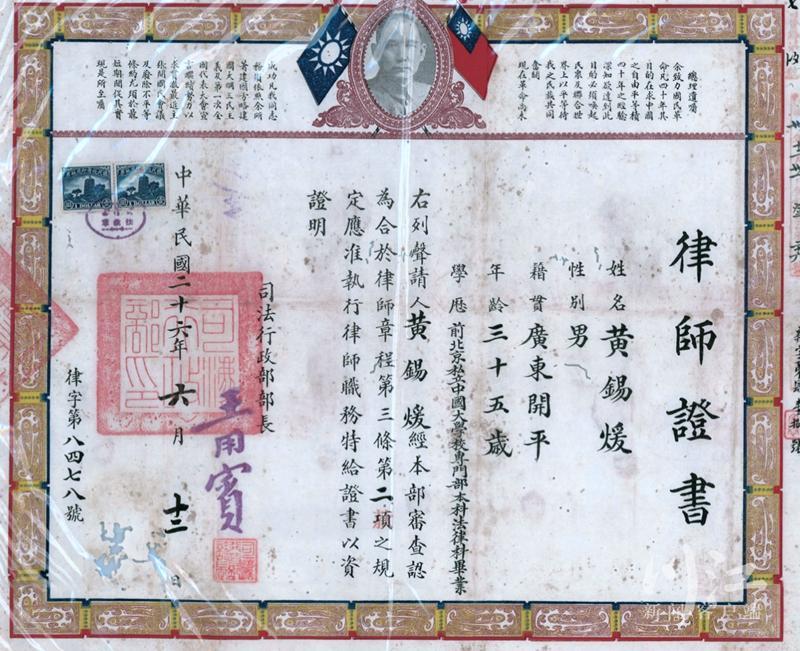 律師證書
姓名 黃錫煖
性別 男
籍貫 廣東開平
年齡 三十五歲
學歷 前北京私立中國大學校專門部本科法律科畢業
右列聲請人黃錫煖經本部審查認
為合於律師章程第三條第二項之規
定應准執行律師職務特給證書以資
證明
司法行政部部長
王用賓
中華民國二十六年六月十三日
律字第八四七八號
總理遺囑
余致力國民革
命凡四十年其
目的在求中國
之自由平等積
四十年之經驗
深知欲達到此
目的必須喚起
民眾及聯合世
界上以平等待
我之民族共同
奮鬭
現在革命尚未
成功凡我同志
務須依照余所
著建國方略建
國大綱三民主
義及第一次全
國代表大會宣
言繼續努力以
求貫徹最近主
張開國民會議
及廢除不平等
條約尤須於最
短期間促其實
現是所至囑
1 DOLLAR
1 DOLLAR
司法行政部印
川江
新聞客戶端